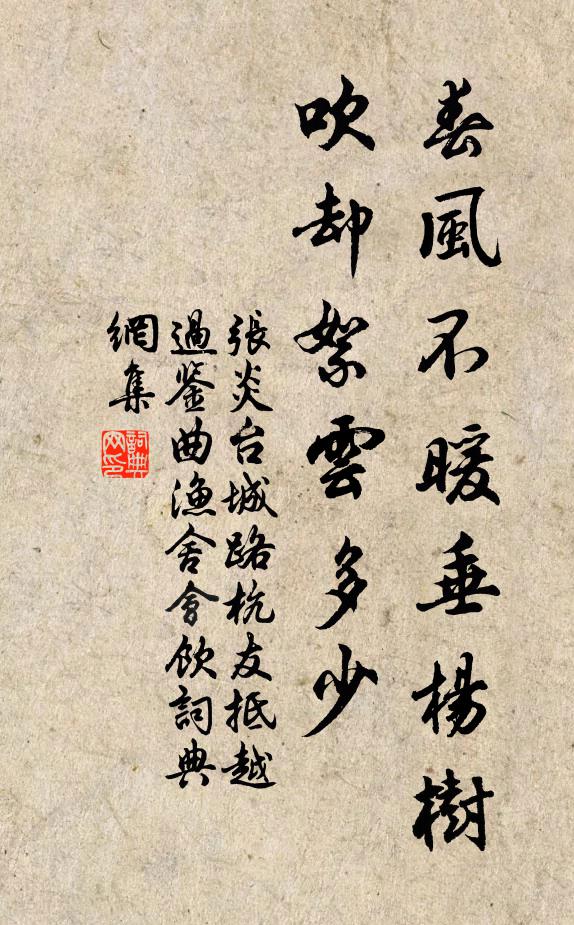 春風不暖垂楊樹
吹却絮雲多少
張炎台城路杭友抵越
過鉴曲漁舍會飲詞典
網集
詞典
网印